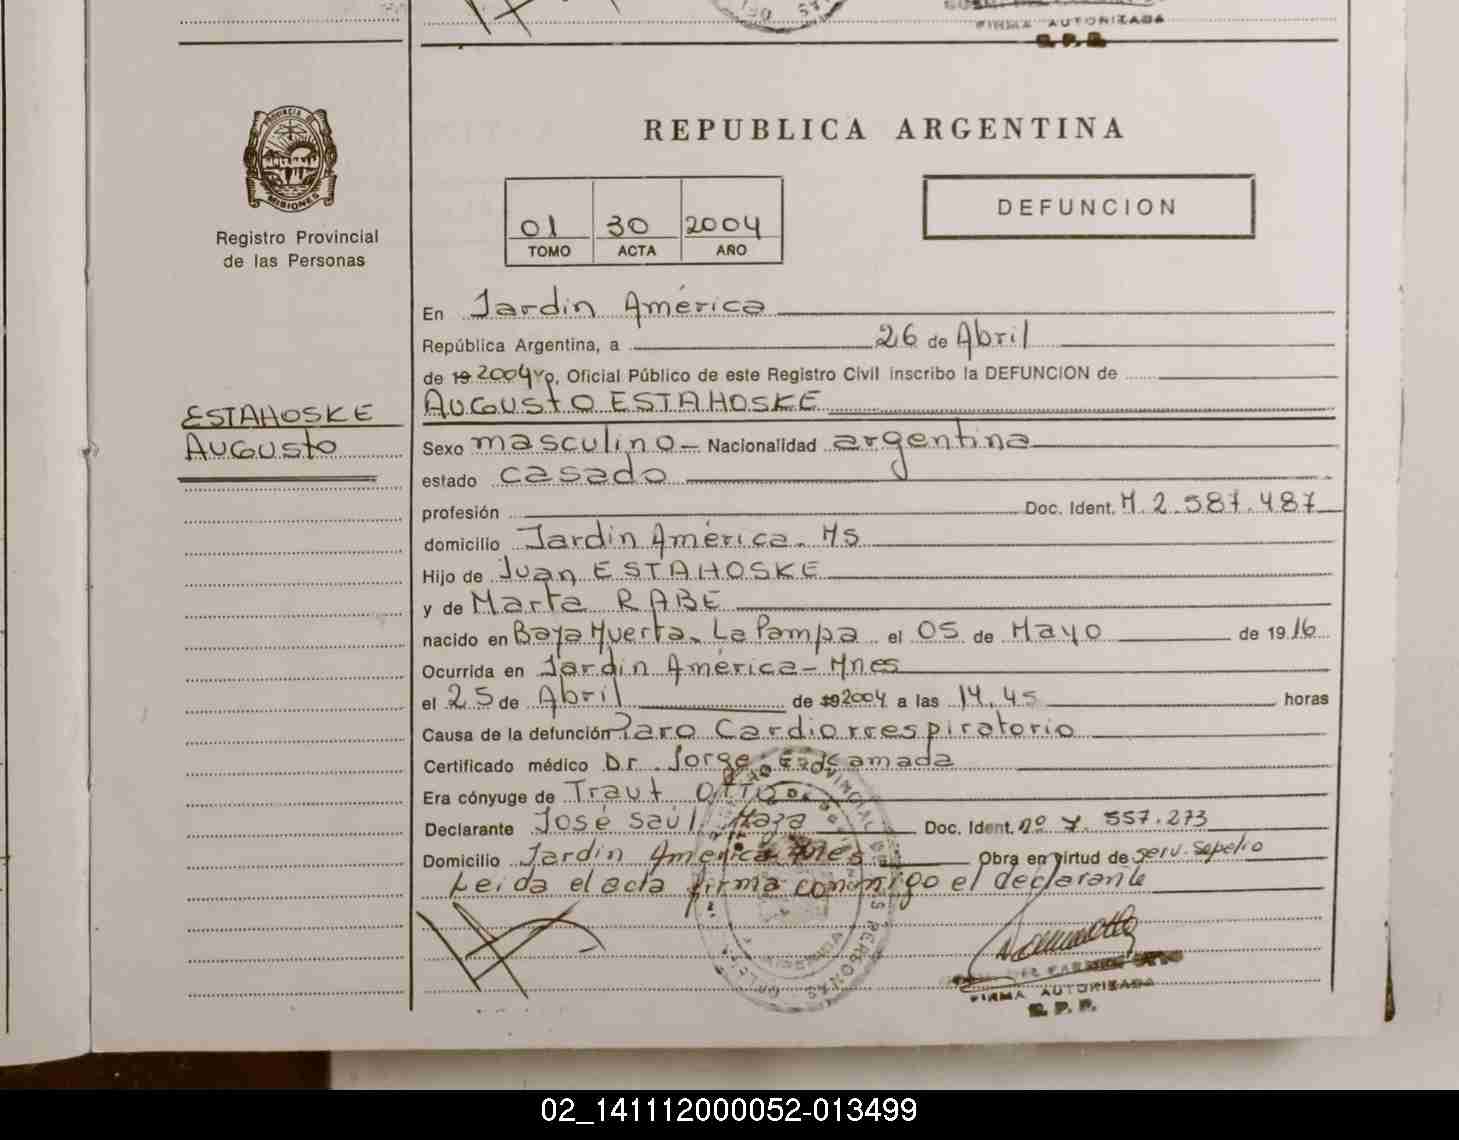 FIRMA AUTORIZADA
PROVINCIA DE
MISIONES
Registro Provincial
de las Personas
ESTAHOSKE
AUGUSTO
REPUBLICA ARGENTINA
01 30 2004
TOMO ACTA AÑO
DEFUNCION
En Jardín América
República Argentina, a 26 de Abril
de 19 2004 yo, Oficial Público de este Registro Civil inscribo la DEFUNCION de
AUGUSTO ESTAHOSKE
Sexo masculino - Nacionalidad argentina
estado casado
profesión Doc. Ident. M. 2.587.487
domicilio Jardín América. MS
Hijo de Juan ESTAHOSKE
y de Marta RABE
nacido en Baja Muerta. La Pampa el 05 de Mayo de 1916
Ocurrida en Jardín América - Mnes
el 25 de Abril de 19 2004 a las 14.45 horas
Causa de la defunción Paro Cardiorrespiratorio
Certificado médico Dr. Jorge
Era cónyuge de Traut OTTO
Declarante José Saúl Doc. Ident. nº 7.557.273
Domicilio Jardín América Mnes Obra en virtud de serv. Sepelio
Leida el acta firma conmigo el declarante
FIRMA AUTORIZADA
R. P. P.
02_141112000052-013499